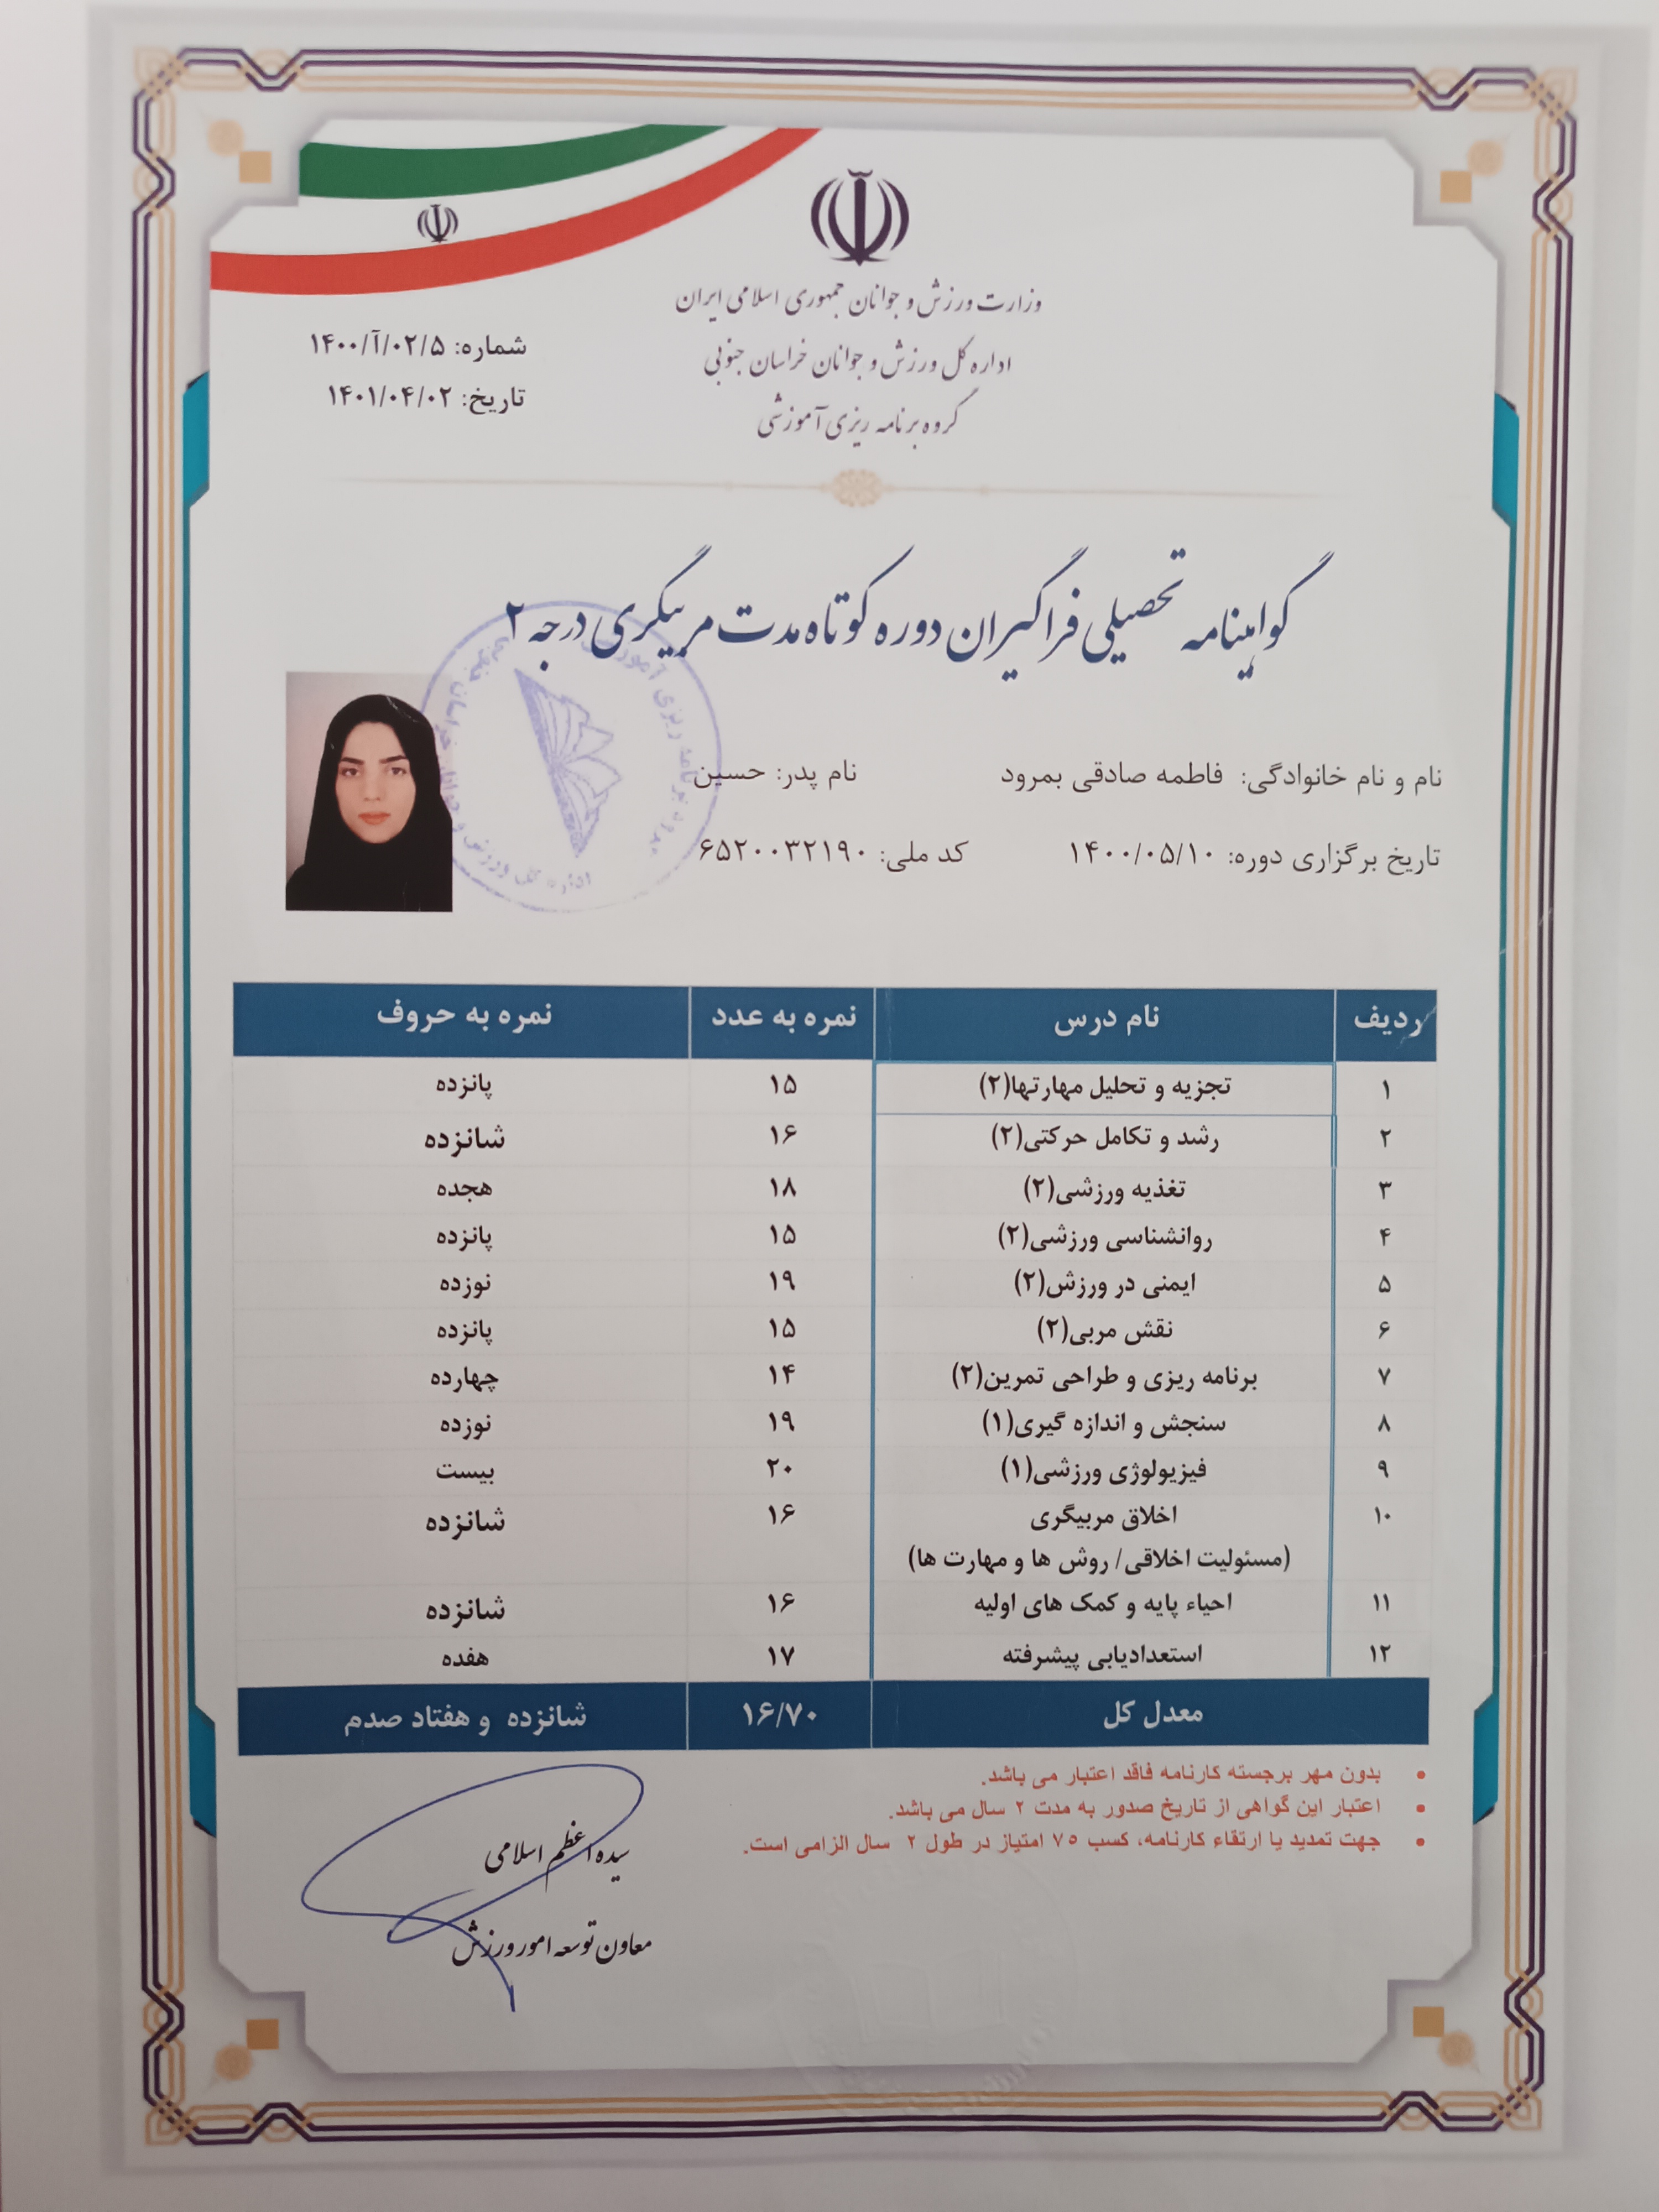 وزارت ورزش و جوانان جمهوری اسلامی ایران
اداره کل ورزش و جوانان خراسان جنوبی
گروه برنامه ریزی آموزشی
شماره: ۱۴۰۰/آ/۰۲/۵
تاریخ: ۱۴۰۱/۰۴/۰۲
گواهینامه تحصیلی فراگیران دوره کوتاه مدت مربیگری درجه ۲
نام و نام خانوادگی: فاطمه صادقی بمرود نام پدر: حسین
تاریخ برگزاری دوره: ۱۴۰۰/۰۵/۱۰ کد ملی: ۶۵۲۰۰۳۲۱۹۰
اداره کل ورزش و جوانان خراسان جنوبی
ردیف نام درس نمره به عدد نمره به حروف
۱ تجزیه و تحلیل مهارتها(۲) ۱۵ پانزده
۲ رشد و تکامل حرکتی(۲) ۱۶ شانزده
۳ تغذیه ورزشی(۲) ۱۸ هجده
۴ روانشناسی ورزشی(۲) ۱۵ پانزده
۵ ایمنی در ورزش(۲) ۱۹ نوزده
۶ نقش مربی(۲) ۱۵ پانزده
۷ برنامه ریزی و طراحی تمرین(۲) ۱۴ چهارده
۸ سنجش و اندازه گیری(۱) ۱۹ نوزده
۹ فیزیولوژی ورزشی(۱) ۲۰ بیست
۱۰ اخلاق مربیگری ۱۶ شانزده
(مسئولیت اخلاقی/ روش ها و مهارت ها)
۱۱ احیاء پایه و کمک های اولیه ۱۶ شانزده
۱۲ استعدادیابی پیشرفته ۱۷ هفده
معدل کل ۱۶/۷۰ شانزده و هفتاد صدم
• بدون مهر برجسته کارنامه فاقد اعتبار می باشد.
• اعتبار این گواهی از تاریخ صدور به مدت ۲ سال می باشد.
• جهت تمدید یا ارتقاء کارنامه، کسب ۷۵ امتیاز در طول ۲ سال الزامی است.
سیده اعظم اسلامی
معاون توسعه امور ورزش